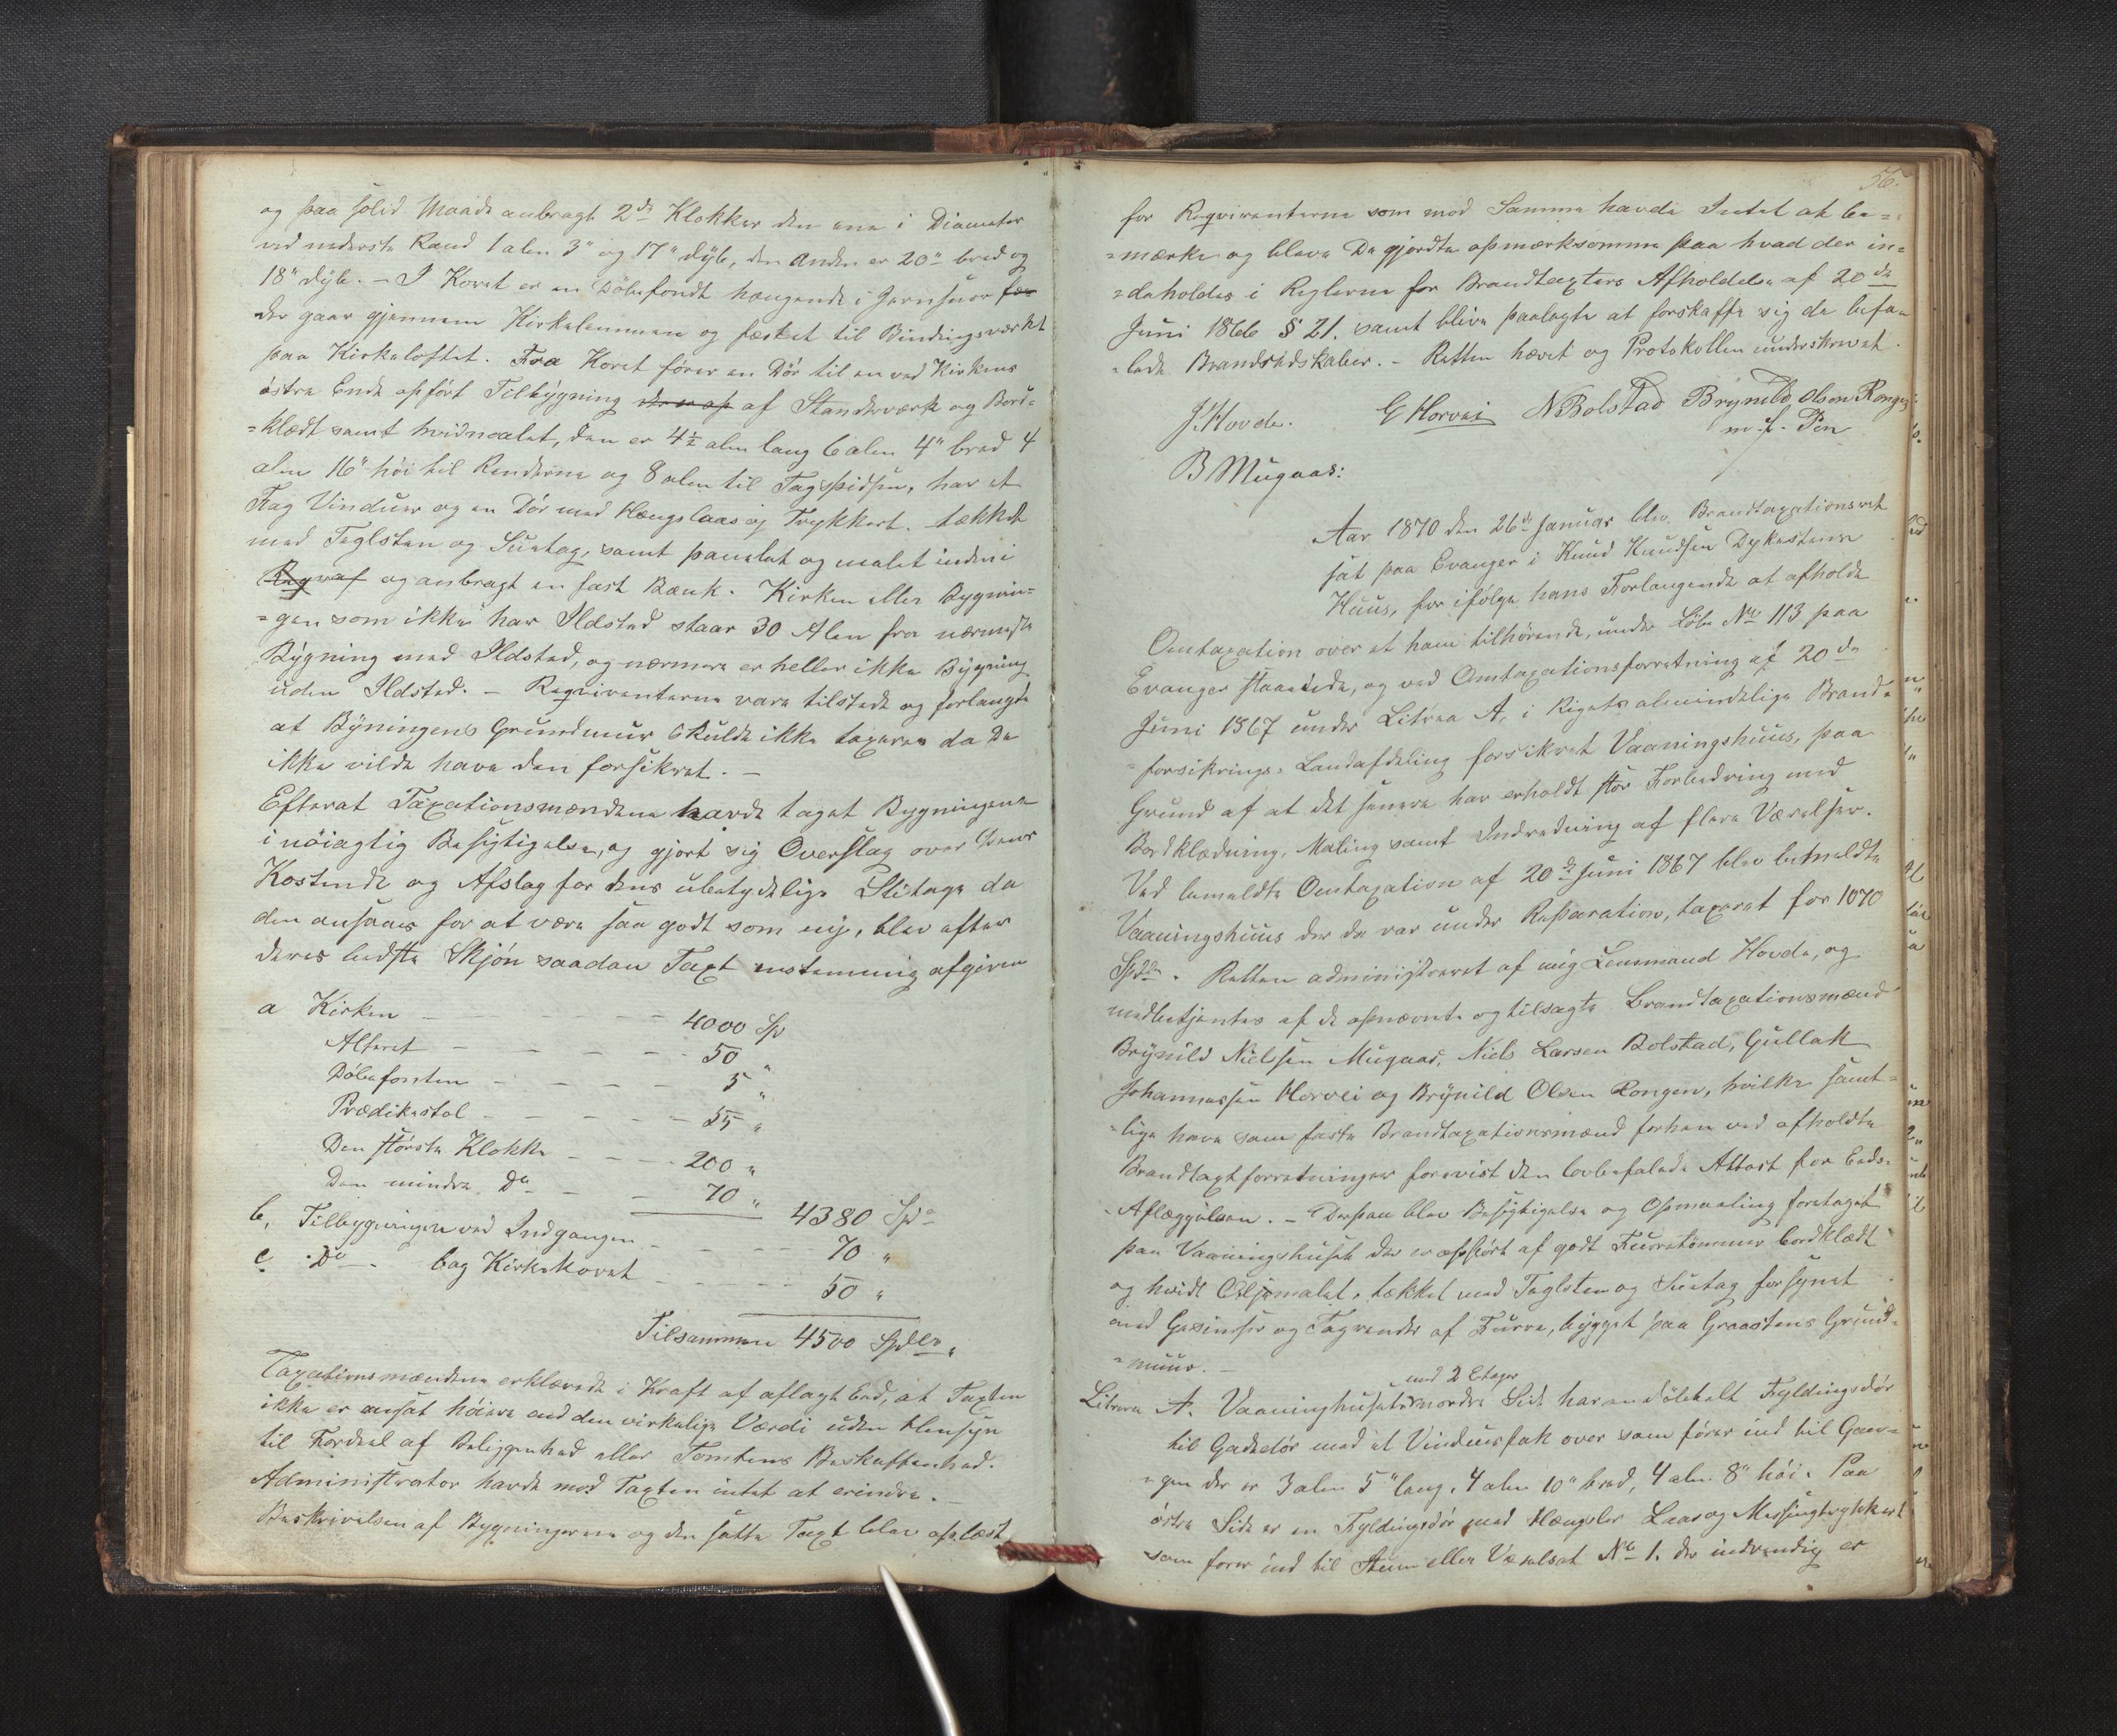 og paa solid Maade anbragt 2de Klokker den ene i Diameter
ved nederste Rand 1 alen 3" og 17" dyb, den Anden er 20" bred og
18" dyb. - I Koret er en Döbefondt hængende i Jernsnor for
der gaar gjennem Kirkelemmen og fæstet til Bindingsværket
paa Kirkeloftet. Fra Koret förer en Dör til en ved Kirkens
östre Ende opfört Tilbygning der er op af Standerværk og Bord-
=klædt samt hvidmalet, den er 4½ alen lang 6 alen 4" bred 4
alen 16" höi til Renderne og 8 alen til Tagspidsen, har et
Fag Vinduer og en Dör med Hængslaas og Trykkert. tækket
med Teglsten og Suetag, samt panelet og malet indeni
og anbragt en fast Bænk. Kirken eller Bygnin-
=gen som ikke har Ildsted staar 30 Alen fra nærmeste
Bygning med Ildsted, og nærmere er heller ikke Bygning
uden Ildsted. - Reqvirenterne vare tilstede og forlangte
at Byningens Grundmuur skulde ikke taxeres da De
ikke vilde have den forsikret. -
Efterat Taxationsmændene havde taget Bygningene
i nöiagtig Besigtigelse, og gjort sig Overslag over dens
Kostende og Afslag for dens ubetydelige Slitage da
den ansaaes for at være saa godt som ny, blev efter
deres bedste Skjön saadan Taxt enstemmig afgiven
a Kirken - - - - - 4000 Sp
Alteret - - - - - 50 "
Döbefonten - - - - - 5 "
Prædikestol - - - - - 55 "
Den störste Klokke - - - - 200 "
Den mindre Do - - 70 " 4380 Spd
b, Tilbygningen ved Indgangen - - - - 70 "
c. Do - bag Kirkekoret - - - - 50 "
Tilsammen 4500 Spdlr.
Taxationsmændene erklærede i Kraft af aflagt Eed, at Taxten
ikke er ansat höiere end den virkelige Værdi uden Hensyn
til Fordeel af Beliggenhed eller Tomtens Beskaffenhed.
Administrator havde mod Taxten intet at erindre. -
Beskrivelsen af Bygningerne og den satte Taxt blev oplæst
56.
for Reqvirenterne som mod Samme havde Intet at be=
=mærke og bleve De gjordte opmærksomme paa hvad der in=
=deholdes i Reglerne for Brandtaxters Afholdelse af 20de
Juni 1866 § 21. samt blive paalagte at forskaffe sig de befa-
=lede Brandredskaber. - Retten hævet og Protokollen underskrevet.
J. Hovde. G Horvei N Bolstad Brynild Olsen Rongen
m. f. Pen
B Mugaas:
Aar 1870 den 26de Januar blev Brandtaxationsret
sat paa Evanger i Knud Knudsen Dykestens
Huus, for ifölge hans Forlangende at afholde
Omtaxation over et ham tilhörende, under Löbe No 113 paa
Evanger staaende, og ved Omtaxationsforretning af 20de
Juni 1867 under Litraa A, i Rigets almindelige Brand-
=forsikrings-Landafdeling forsikret Vaaningshuus, paa
Grund af at det senere har erholdt stor Forbedring med
Bordklædning, Maling samt Indredning af flere Værelser.
Ved bemeldte Omtaxation af 20de Juni 1867 blev bemeldte
Vaaningshuus der da var under Reparation, taxeret for 1070
Spdlr. Retten administreret af mig Lensmand Hovde, og
medbetjentes af de opnævnte og tilsagte Brandtaxationsmænd
Brynild Nielsen Mugaas, Niels Larsen Bolstad, Gullak
Johannessen Horvei og Brynild Olsen Rongen, hvilke samt-
=lige have som faste Brandtaxationsmænd forhen ved afholdte
Brandtaxtforretninger forevist den lovbefalede Attest for Eeds-
Aflæggelsen. - Derpaa blev Besigtigelse og Opmaaling foretaget
paa Vaaningshuset der er opfört af godt Furretömmer bordklædt
og hvidt Oljemalet, tækket med Teglsten og Suetag forsynet
med Gesimser og Tagrender af Furre, bygget paa Graastens Grund-
=muur. -
med 2 Etager
Litraa A. Vaaninghusets nordre Side har en dölekelt Fyldingsdör
til Gadedör med et Vinduesfak over som förer ind til Gan-
=gen der er 3 alen 5" lang, 4 alen 10" bred, 4 alen 8" höi. Paa
östre Side er en Fyldingsdör med Hængsler Laas og Messingtrykkert
som förer ind til Stuen eller Værelset No 1. der indvendig er